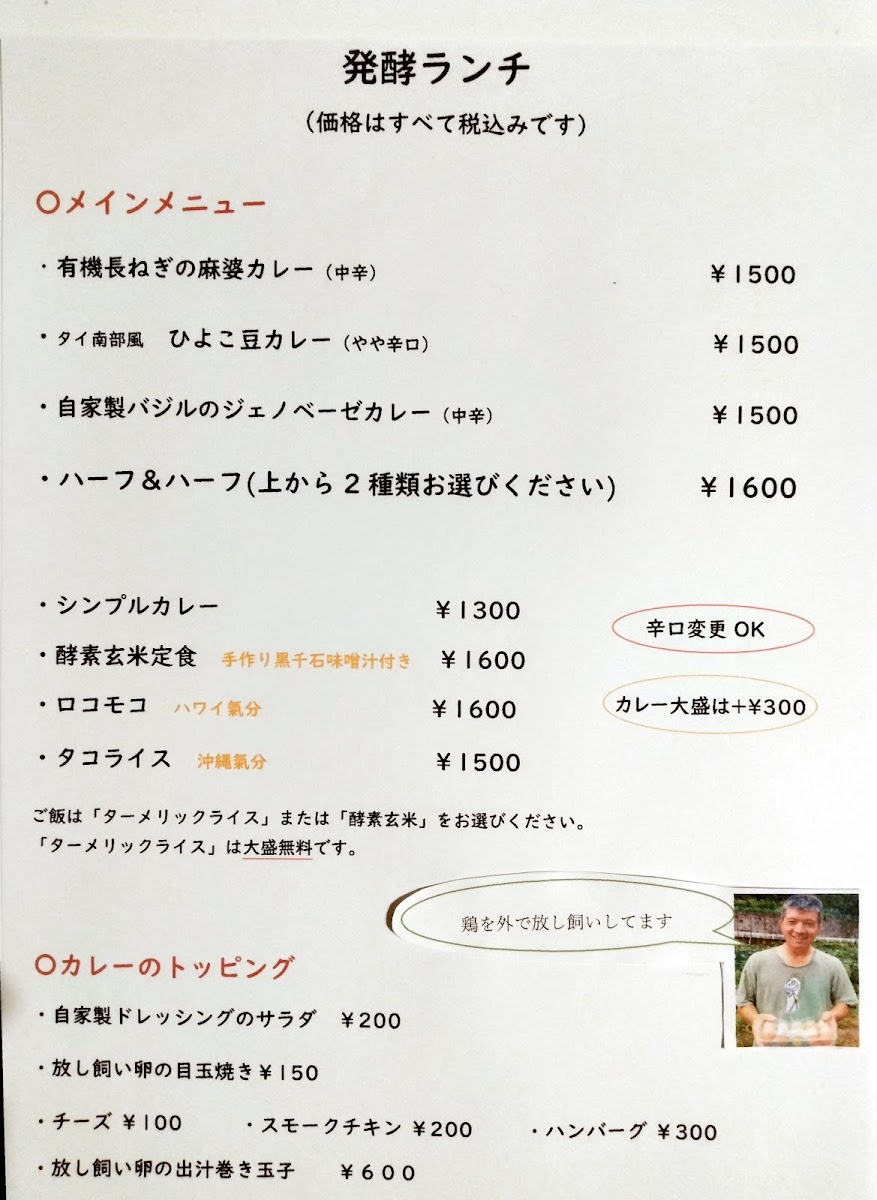 発酵ランチ
(価格はすべて税込みです)
〇メインメニュー
・有機長ねぎの麻婆カレー（中辛） ￥1500
・タイ南部風 ひよこ豆カレー（やや辛口） ￥1500
・自家製バジルのジェノベーゼカレー（中辛） ￥1500
・ハーフ＆ハーフ(上から２種類お選びください) ￥1600
・シンプルカレー ￥1300
辛口変更 OK
・酵素玄米定食 手作り黒千石味噌汁付き ￥1600
・ロコモコ ハワイ氣分 ￥1600
カレー大盛は＋¥300
・タコライス 沖縄氣分 ￥1500
ご飯は「ターメリックライス」または「酵素玄米」をお選びください。
「ターメリックライス」は大盛無料です。
鶏を外で放し飼いしてます
〇カレーのトッピング
・自家製ドレッシングのサラダ ￥200
・放し飼い卵の目玉焼き￥150
・チーズ ￥100 ・スモークチキン ￥200 ・ハンバーグ ￥300
・放し飼い卵の出汁巻き玉子 ￥６００